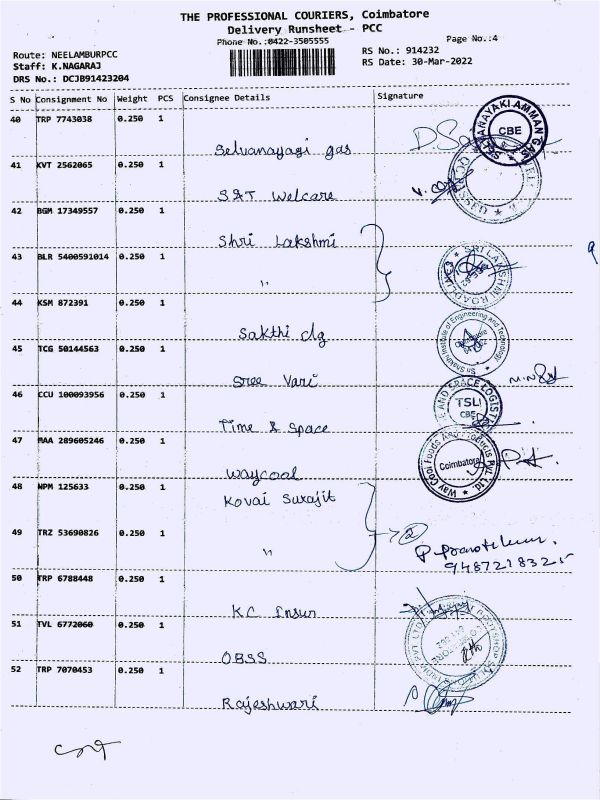 THE PROFESSIONAL COURIERS, Coimbatore
Delivery Runsheet - PCC
Phone No.:0422-3505555
Page No.:4
Route: NEELAMBURPCC
RS No.: 914232
Staff: K.NAGARAJ
RS Date: 30-Mar-2022
DRS No.: DCJB91423204
S No Consignment No Weight PCS Consignee Details Signature
40 TRP 7743038 0.250 1
Selvanayagi gas
CBE
41 KVT 2562065 0.250 1
S&T Welcare
42 BGM 17349557 0.250 1
Shri Lakshmi
43 BLR 5400591014 0.250 1
"
44 KSM 872391 0.250 1
Sakthi clg
Sri Shakthi Institute of Engineering and Technology
45 TCG 50144563 0.250 1
Sree Vari
46 CCU 100093956 0.250 1
Time & Space
E AND SPACE LOGISTI
TSLI
CBE
47 MAA 289605246 0.250 1
waycool
Way Cool Foods And Products Pvt. Ltd.
Coimbatore
48 NPM 125633 0.250 1
Kovai Surajit
49 TRZ 53690826 0.250 1
"
2
9487218325
50 TRP 6788448 0.250 1
KC Insur
51 TVL 6772060 0.250 1
OBSS
52 TRP 7070453 0.250 1
Rajeshwari